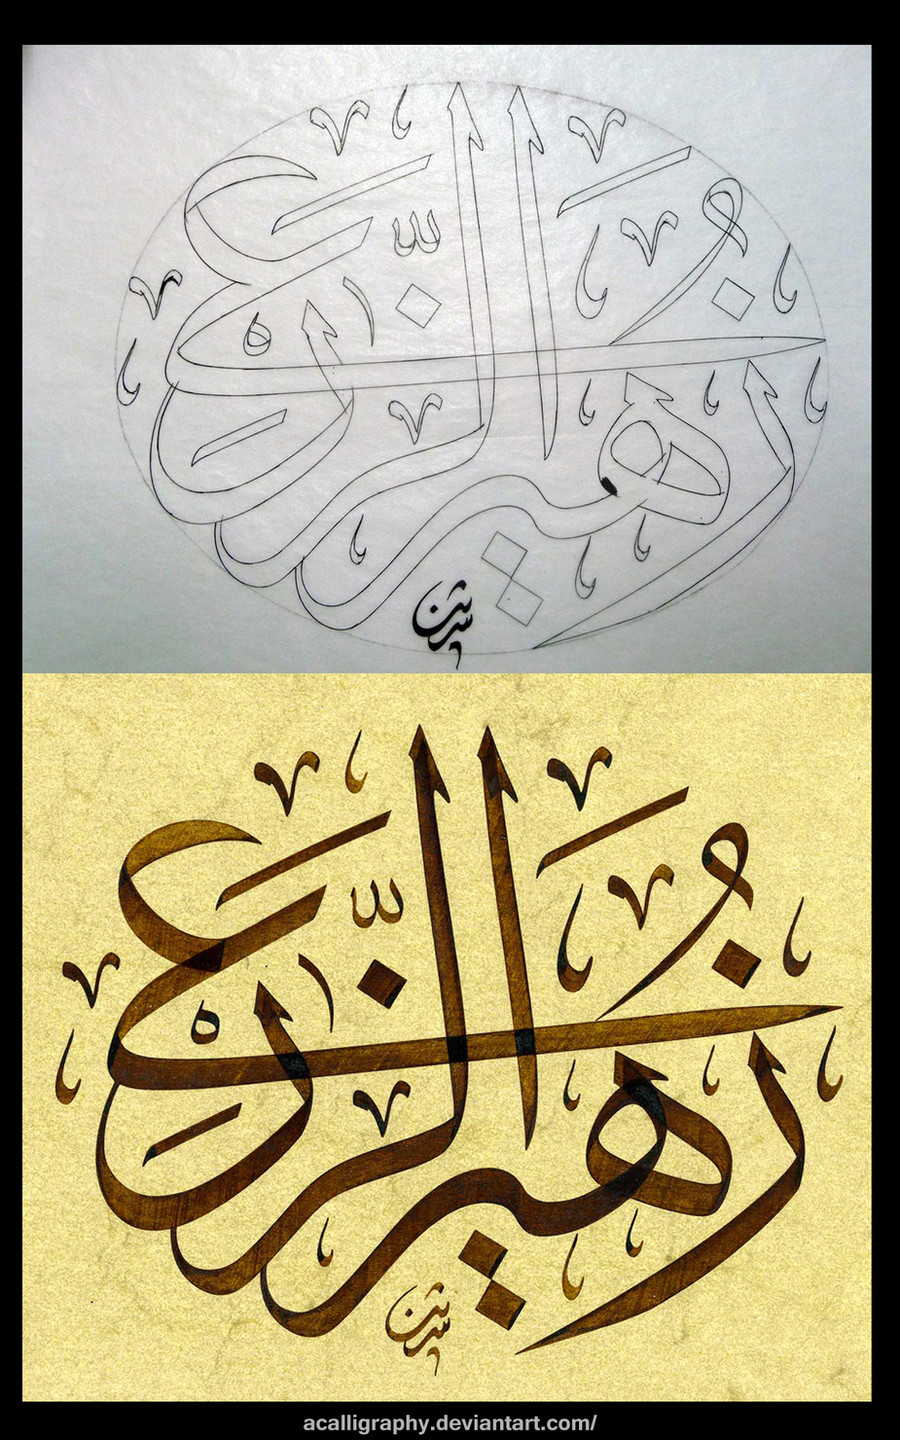 زُهير الزّرعي
زُهير الزّرعي
acalligraphy.deviantart.com/